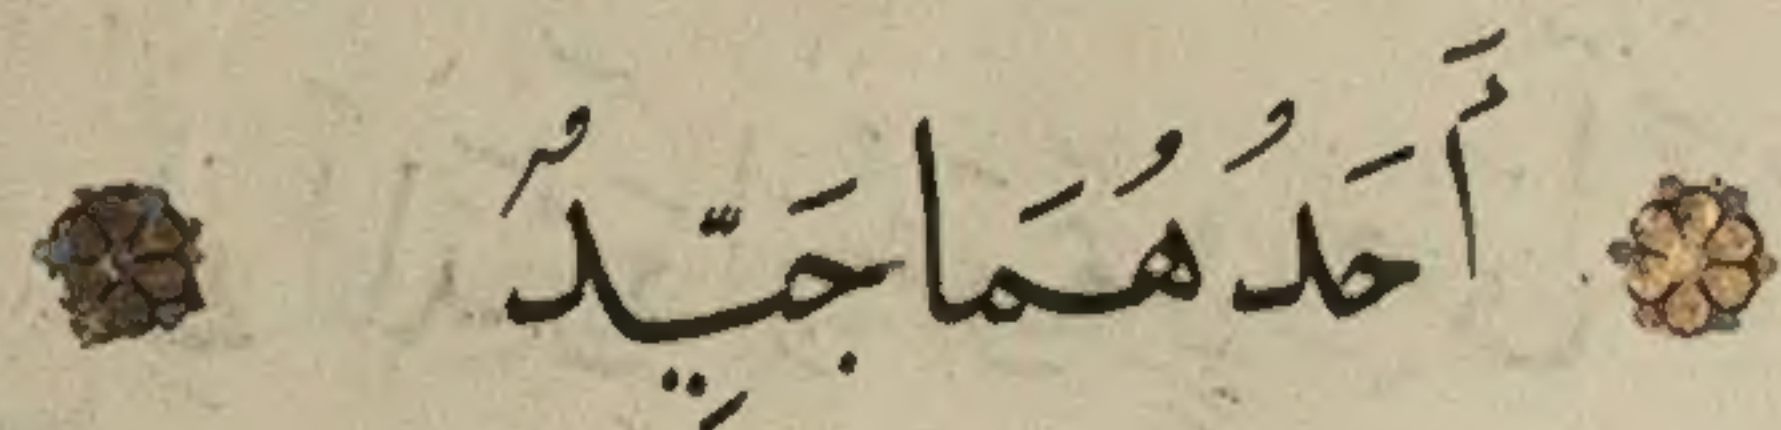 أَحَدُهُمَا جَيِّدٌ